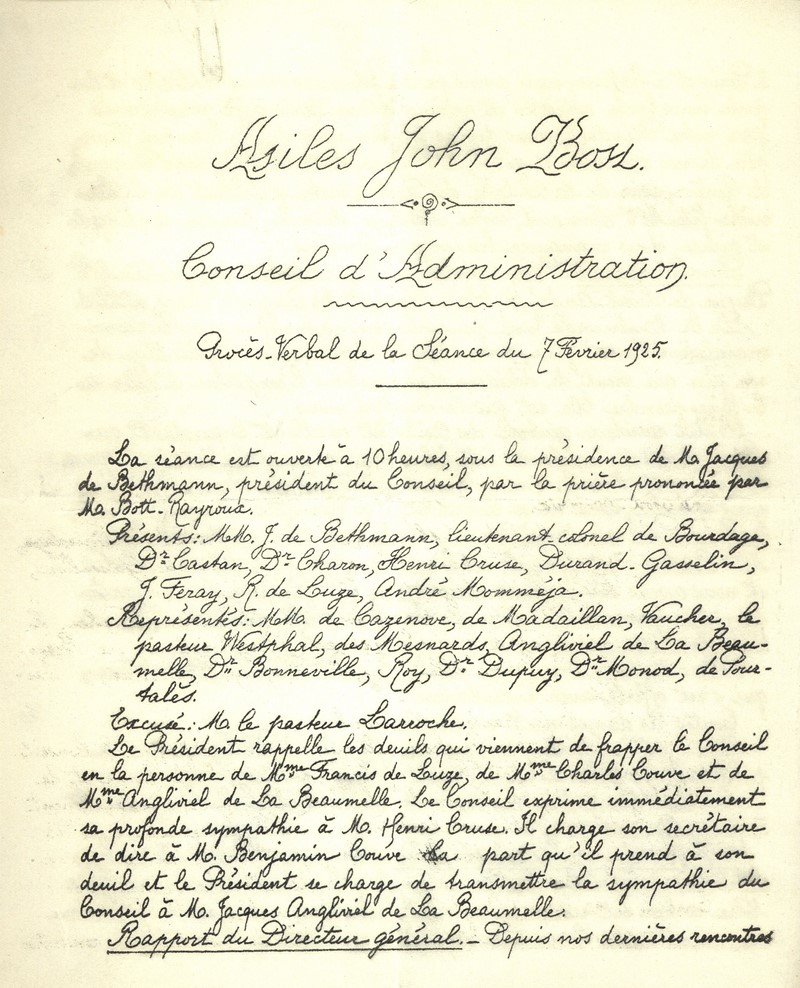 Asiles John Bost.
Conseil d'Administration.
Procès-Verbal de la Séance du 7 Février 1925.
La séance est ouverte à 10 heures, sous la présidence de M. Jacques
de Bethmann, président du Conseil, par la prière prononcée par
M. Bott-Rayroux.
Présents: MM. J. de Bethmann, lieutenant-colonel de Bourdage,
Dr Castan, Dr Charon, Henri Cruse, Durand-Gasselin,
J. Feray, R. de Luze, André Momméja.
Représentés: MM. de Cazenove, de Madaillan, Vaucher, le
pasteur Westphal, des Mesnards, Angliviel de La Beau-
melle, Dr Bonneville, Roy, Dr Dupuy, Dr Monod, de Pour-
talès.
Excusé: M. le pasteur Larroche.
Le Président rappelle les deuils qui viennent de frapper le Conseil
en la personne de Mme Francis de Luze, de Mme Charles Couve et de
Mme Angliviel de La Beaumelle. Le Conseil exprime immédiatement
sa profonde sympathie à M. Henri Cruse. Il charge son secrétaire
de dire à M. Benjamin Couve la part qu'il prend à son
deuil et le Président se charge de transmettre la sympathie du
Conseil à M. Jacques Angliviel de La Beaumelle.
Rapport du Directeur général. - Depuis nos dernières rencontres